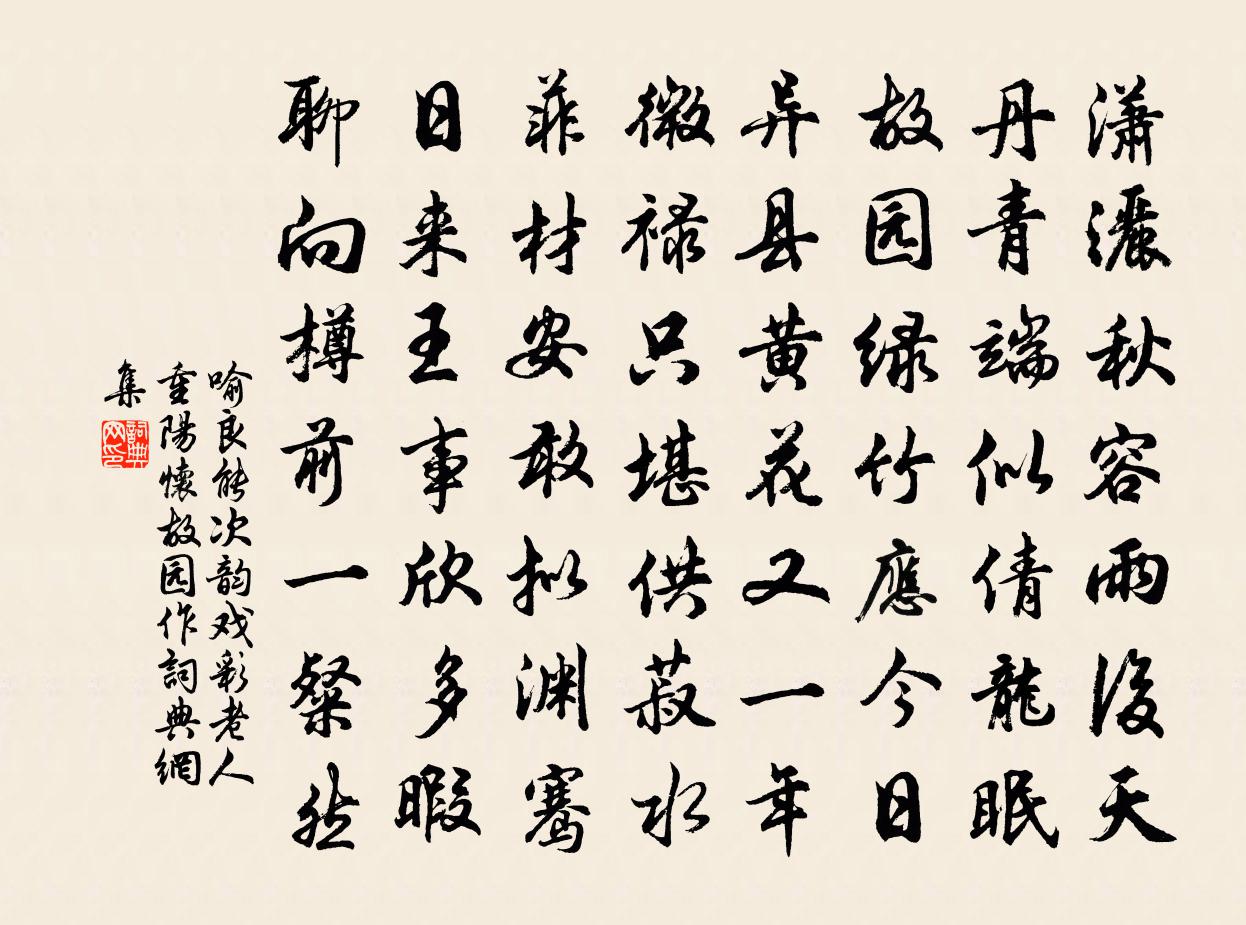 潇灑秋容雨後天
丹青端似倩龍眠
故园绿竹應今日
异县黄花又一年
微禄只堪供菽水
菲材安敢拟渊骞
日来王事欣多暇
聊向樽前一粲然
喻良能次韵戏彩老人
重陽懷故园作詞典網
集
詞典网印